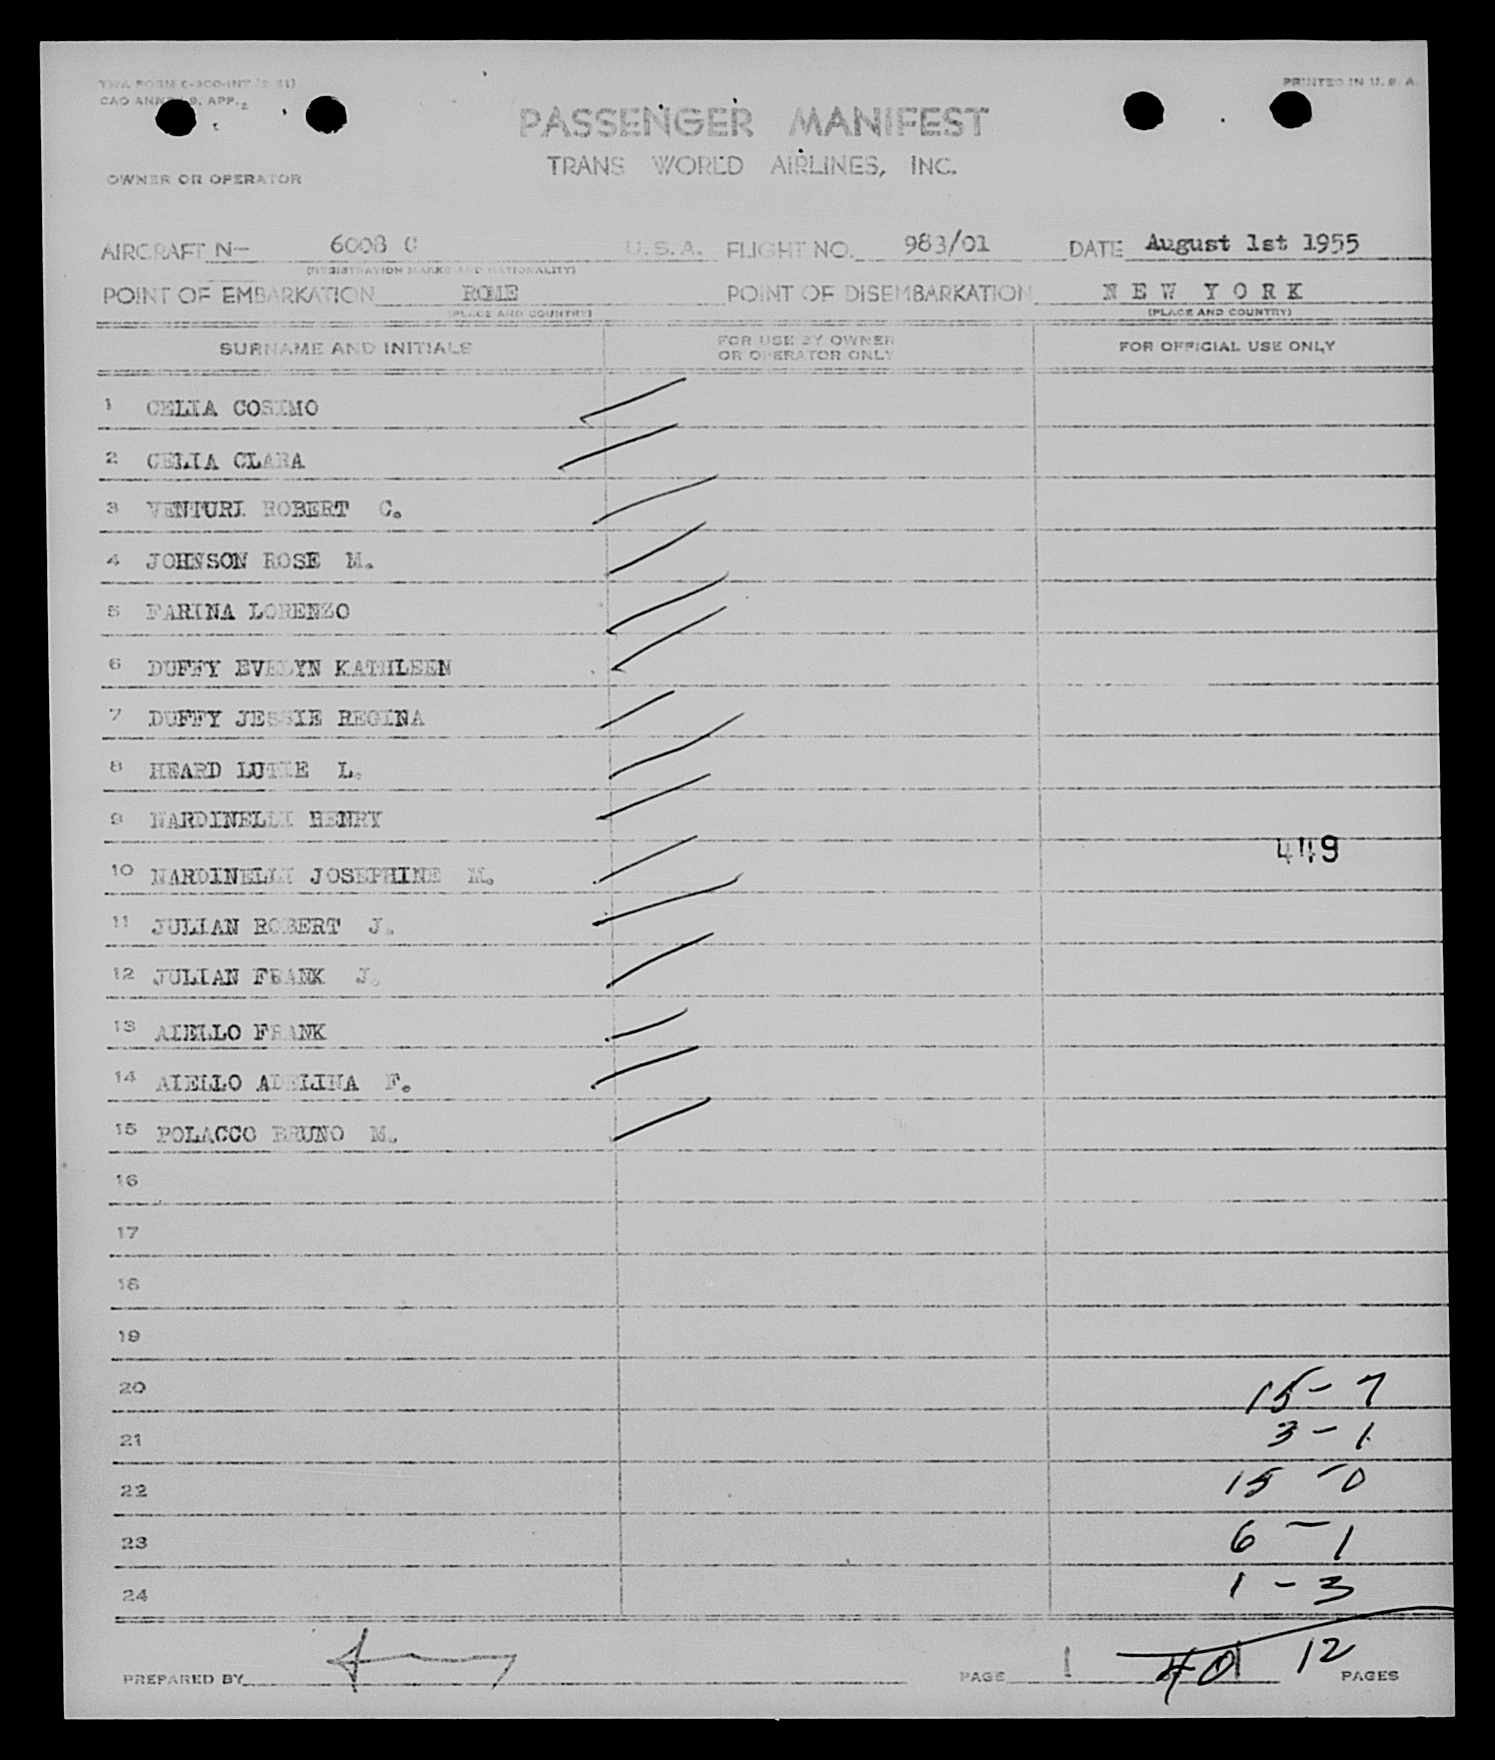 TWA FORM C-300-INT
PRINTED IN U. S. A.
CAO ANNEX 9, APP. 2
PASSENGER MANIFEST
TRANS WORLD AIRLINES, INC.
OWNER OR OPERATOR
AIRCRAFT N— 6008 C U.S.A. FLIGHT NO. 983/01 DATE August 1st 1955
(REGISTRATION MARKS AND NATIONALITY)
POINT OF EMBARKATION ROME POINT OF DISEMBARKATION N E W Y O R K
(PLACE AND COUNTRY) (PLACE AND COUNTRY)
SURNAME AND INITIALS
FOR USE BY OWNER
OR OPERATOR ONLY
FOR OFFICIAL USE ONLY
1 CELIA COSIMO
2 CELIA CLARA
3 VENTURI ROBERT C.
4 JOHNSON ROSE M.
5 FARINA LORENZO
6 DUFFY EVELYN KATHLEEN
7 DUFFY JESSIE REGINA
8 HEARD LUTIE L.
9 NARDINELLI HENRY
449
10 NARDINELLI JOSEPHINE M.
11 JULIAN ROBERT J.
12 JULIAN FRANK J.
13 AIELLO FRANK
14 AIELLO ADELINA F.
15 POLACCO BRUNO M.
16
17
18
19
20 15 - 7
21 3 - 1
22 15 - 0
23 6 - 1
24 1 - 3
PREPARED BY PAGE 1 40 12 PAGES